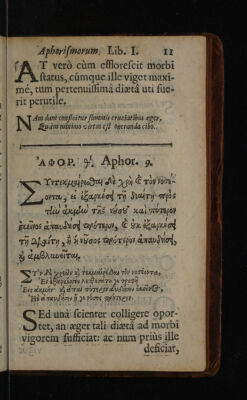 Aphorismorum Lib. I. 11
AT verò cùm efflorescit morbi
status, cúmque ille viget maxi-
mè, tum pertenuissimâ diætâ uti fue-
rit perutile.
NAm dum conficitur summis cruciatibus æger,
Quàm minimo vertus est operanda cibo.
ΑΦΟΡ. θ. Aphor. 9.
Συντεκμαίρεσθαι δὲ χρὴ ϗ τὸν νοσέ-
οντα, εἰ ἐξαρκέσει τῇ διαίτῃ πρὸς
τὴν ἀκμὴν τῆς νόσου· καὶ πότερον
ἐκεῖνος ἀπαυδήσει πρότερον, ϗ οὐκ ἐξαρκέσει
τῇ διαίτῃ, ἢ ἡ νοῦσος πρότερον ἀπαυδήσει,
ϗ ἀμβλυνεῖται.
τὸν νοσέοντα,
SEd unà scienter colligere opor-
tet, an æger tali diætâ ad morbi
vigorem sufficiat: ac num priùs ille
deficiat,